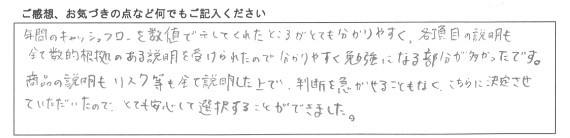 ご感想、お気づきの点など何でもご記入ください
年間のキャッシュフローを数値で示してくれたところがとても分かりやすく、各項目の説明も
全て数的根拠のある説明を受けられたので分かりやすく勉強になる部分が多かったです。
商品の説明もリスク等も全て説明した上で、判断を急がせることもなく、こちらに決定させ
ていただいたので、とても安心して選択することができました。